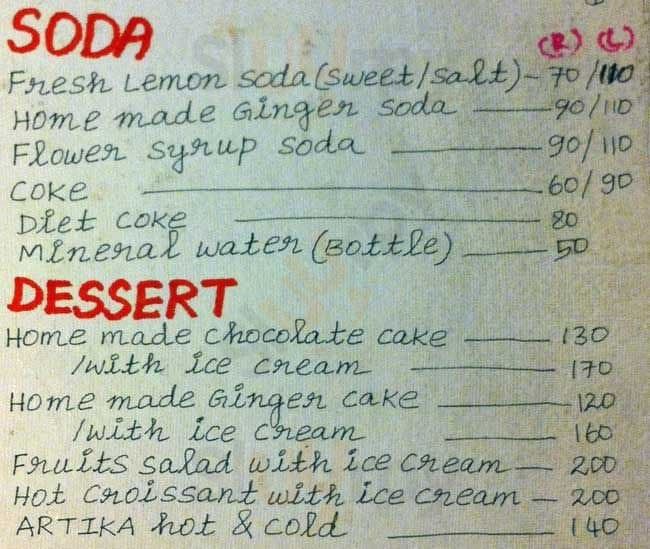 SODA
(R) (L)
Fresh Lemon soda (sweet/salt) - 70/110
Home made Ginger soda — 90/110
Flower syrup soda — 90/110
Coke — 60/90
Diet coke — 80
Mineral water (Bottle) — 50
DESSERT
Home made chocolate cake — 130
/with ice cream — 170
Home made Ginger cake — 120
/with ice cream — 160
Fruits salad with ice cream — 200
Hot croissant with ice cream — 200
ARTIKA hot & cold — 140